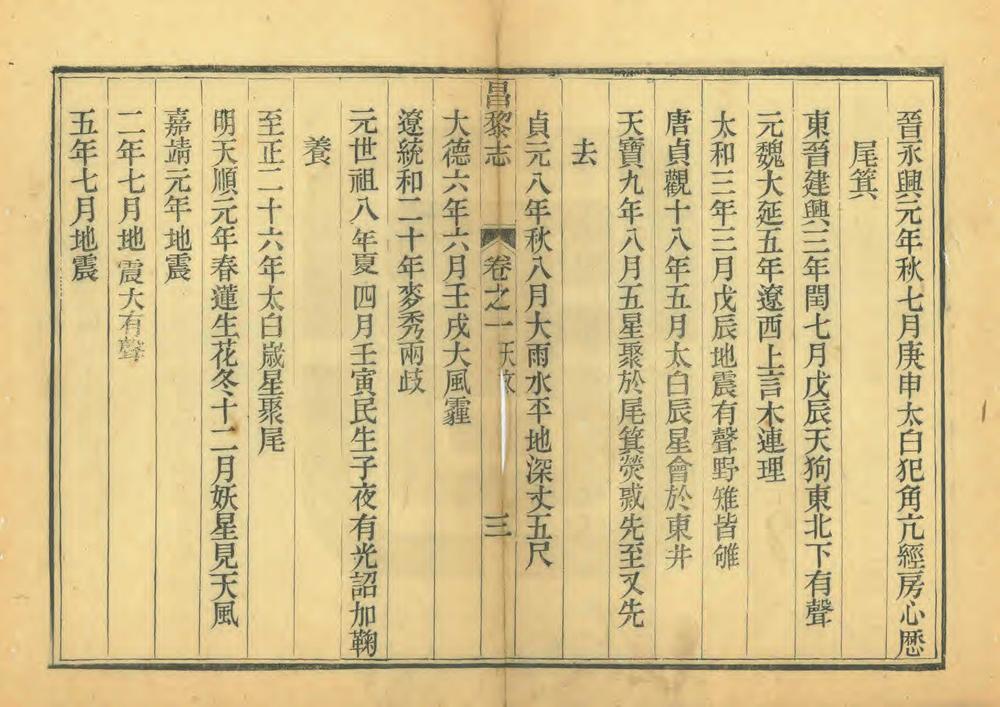 晉永興元年秋七月庚申太白犯角亢經房心歷
尾箕
東晉建興三年閏七月戊辰天狗東北下有聲
元魏大延五年遼西上言木連理
太和三年三月戊辰地震有聲野雉皆雊
唐貞觀十八年五月太白辰星會於東井
天寶九年八月五星聚於尾箕熒惑先至又先
去
貞元八年秋八月大雨水平地深丈五尺
昌黎志
卷之一
三
大德六年六月壬戌大風霾
遼統和二十年麥秀兩歧
元世祖八年夏四月壬寅民生子夜有光詔加鞠
養
至正二十六年太白歲星聚尾
明天順元年春蓮生花冬十二月妖星見天風
嘉靖元年地震
二年七月地震大有聲
五年七月地震